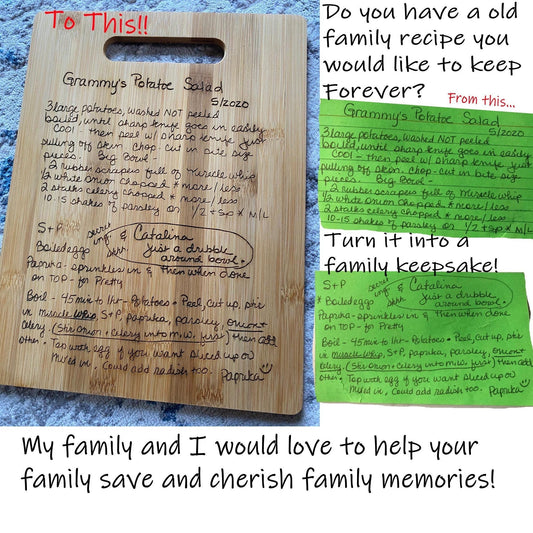 To This!!
Grammy's Potatoe Salad
5/2020
3 large potatoes, washed NOT peeled
boild, until sharp knife goes in easily
Cool - then peel w/ sharp knife just
pulling off skin chop-cut in bite size
pieces. Big Bowl -
2 rubber scrapes full of Muscle whip
1/2 white onion chopped * more/less
2 stalks celery chopped * more/less
10-15 shakes of parsley or 1/2 tsp * M/L
S+P secret ing. & Catalina
Boiled eggs just a dribble
around bowl.
Paprika - sprinkles in & then when done
on TOP - for Pretty
Boil - 45min to 1hr - Potatoes * Peel, cut up, put
in muscle whip, S+P, paprika, parsley, onion+
celery (Stir onion + celery into m.w. first) then add
other * Top with egg if you want sliced up or
mixed in, Could add radish too. Paprika
Do you have a old
family recipe you
would like to keep
Forever?
From this...
Grammy's Potatoe Salad
5/2020
3 large potatoes, washed NOT peeled
boild, until sharp knife goes in easily
Cool - then peel w/ sharp knife just
pulling off skin chop-cut in bite size
pieces. Big Bowl -
2 rubber scrapes full of Muscle whip
1/2 white onion chopped * more/less
2 stalks celery chopped * more/less
10-15 shakes of parsley or 1/2 tsp * M/L
Turn it into a
family keepsake!
S+P secret ing. & Catalina
* Boiled eggs just a dribble
around bowl.
Paprika - sprinkles in & then when done
on TOP - for Pretty
Boil - 45min to 1hr - Potatoes * Peel, cut up, put
in muscle whip, S+P, paprika, parsley, onion+
celery (Stir onion + celery into m.w. first) then add
other * Top with egg if you want sliced up or
mixed in, Could add radish too. Paprika
My family and I would love to help your
family save and cherish family memories!